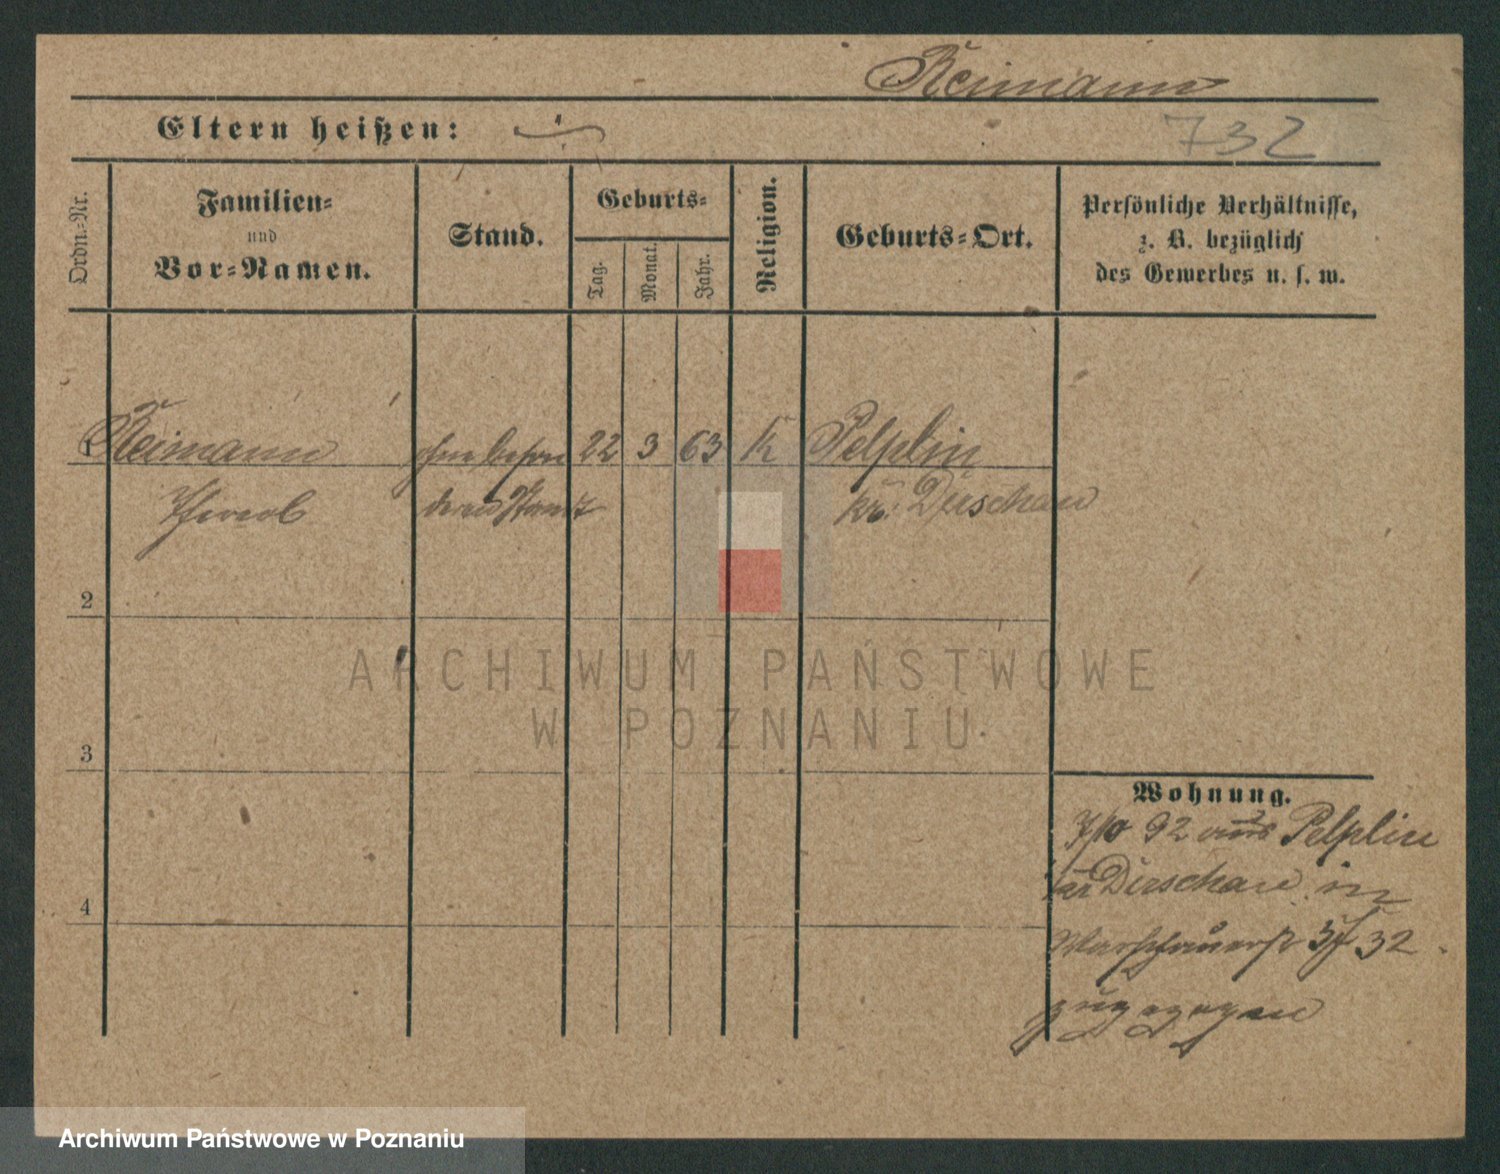 Reimann
Eltern heißen:
732
Ordn.-Nr.
Familien-
und
Vor-Namen.
Stand.
Geburts-
Tag.
Monat.
Jahr.
Religion.
Geburts-Ort.
Persönliche Verhältnisse,
z. B. bezüglich
des Gewerbes u. s. w.
1 Reimann ohne beson 22 3 63 K Pelplin
deren Stand Kr. Dirschau
2
3
4
Wohnung.
92 aus Pelplin
Kr Dirschau in
Warschauerst 32
zugezogen
ARCHIWUM PAŃSTWOWE
W POZNANIU
Archiwum Państwowe w Poznaniu